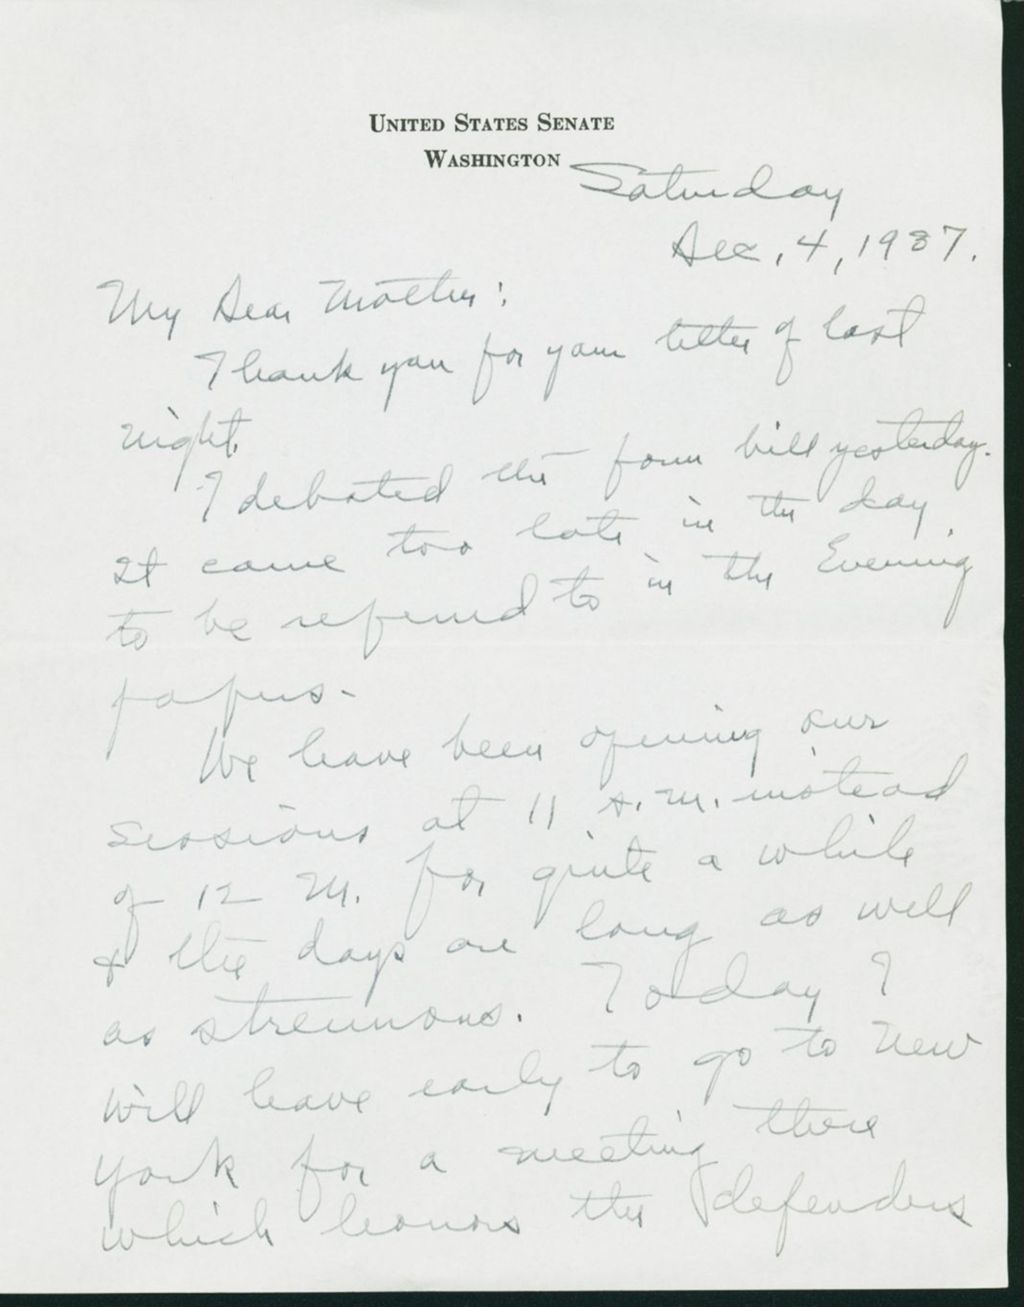 UNITED STATES SENATE
WASHINGTON
Saturday
Dec, 4, 1937.
My Dear Mother:
Thank you for your letter of last
night.
I debated the farm bill yesterday.
It came too late in the day,
to be referred to in the Evening
papers.
We have been opening our
sessions at 11 A.M. instead
of 12 M. for quite a while
& the days are long as well
as strenuous. Today I
will leave early to go to New
York for a meeting there
which honors the defenders